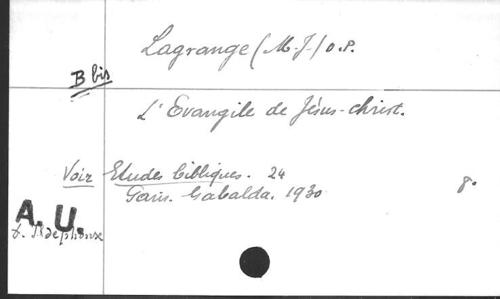 Lagrange (M.-J.) O.P.
B bis
L'Evangile de Jésus-Christ.
Voir Etudes bibliques. 24
Paris. Gabalda. 1930 8°
A. U.